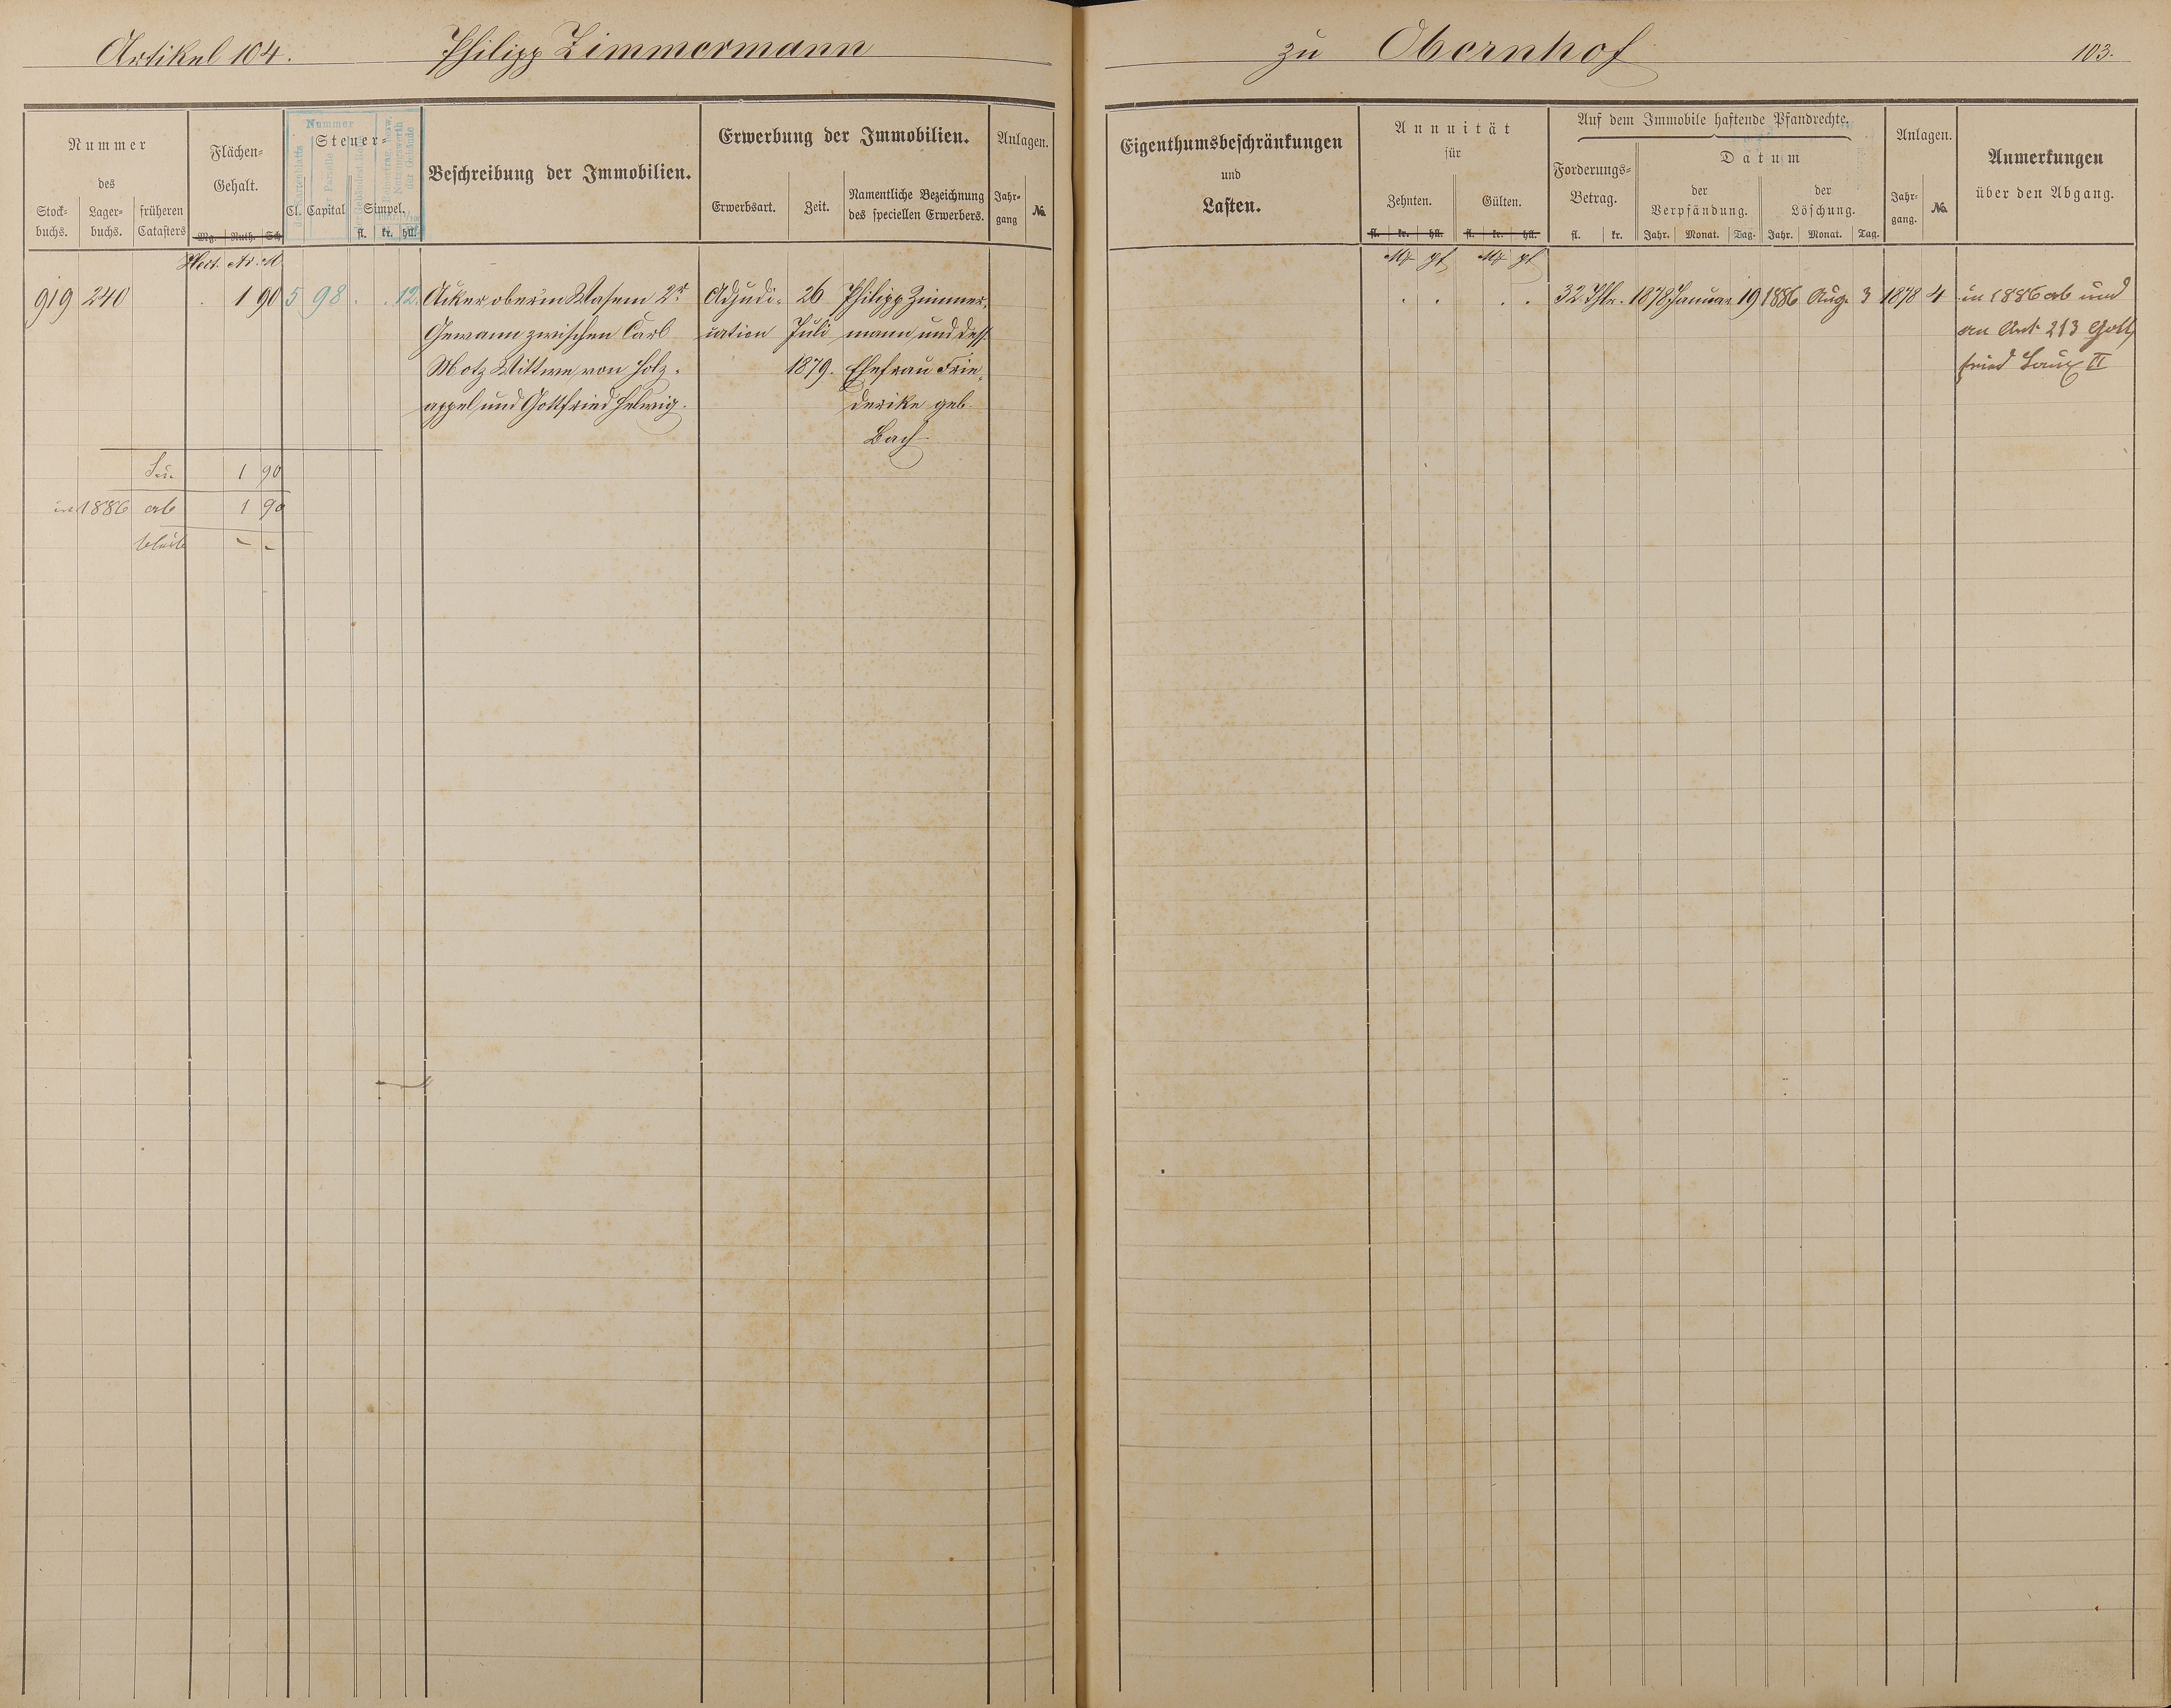 Artikel 104. Philipp Zimmermann zu Obernhof 103.
Nummer
des
Stock-
buchs.
Lager-
buchs.
früheren
Catasters
Flächen-
Gehalt.
Mg. Ruth. Sch
Nummer
des Kartenblatts
der Parzelle
der Gebäude
Steuer-
Cl. Capital Simpel.
fl. kr. hll.
Beschreibung der Immobilien.
Erwerbung der Immobilien.
Erwerbsart. Zeit.
Namentliche Bezeichnung
des speciellen Erwerbers.
Anlagen.
Jahr-
gang
№
Eigenthumsbeschränkungen
und
Lasten.
Annuität
für
Zehnten. Gülten.
fl. kr. hll. fl. kr. hll.
Auf dem Immobile haftende Pfandrechte.
Forderungs-
Betrag.
fl. kr.
Datum
der
Verpfändung.
der
Löschung.
Jahr. Monat. Tag. Jahr. Monat. Tag.
Anlagen.
Jahr-
gang.
№
Anmerkungen
über den Abgang.
Hect. Ar. M. Mk pf Mk pf
919 240 . 1 90 5 98 . . 12. Acker ober'm Wasem 2r Adjudi- 26 Philipp Zimmer- . . . . 32 Thlr. 1878 Januar 19 1886 Aug. 3 1878 4 in 1886 ab und
Gewann zwischen Carl cation Juli mann und dess. an Art. 213 Gott
Motz Wittwe, von Holz- 1879. Ehefrau Frie- fried II
appel und Gottfried Helwig. derike geb.
Bach
Su. 1 90
in 1886 ab 1 90
bleibt - -